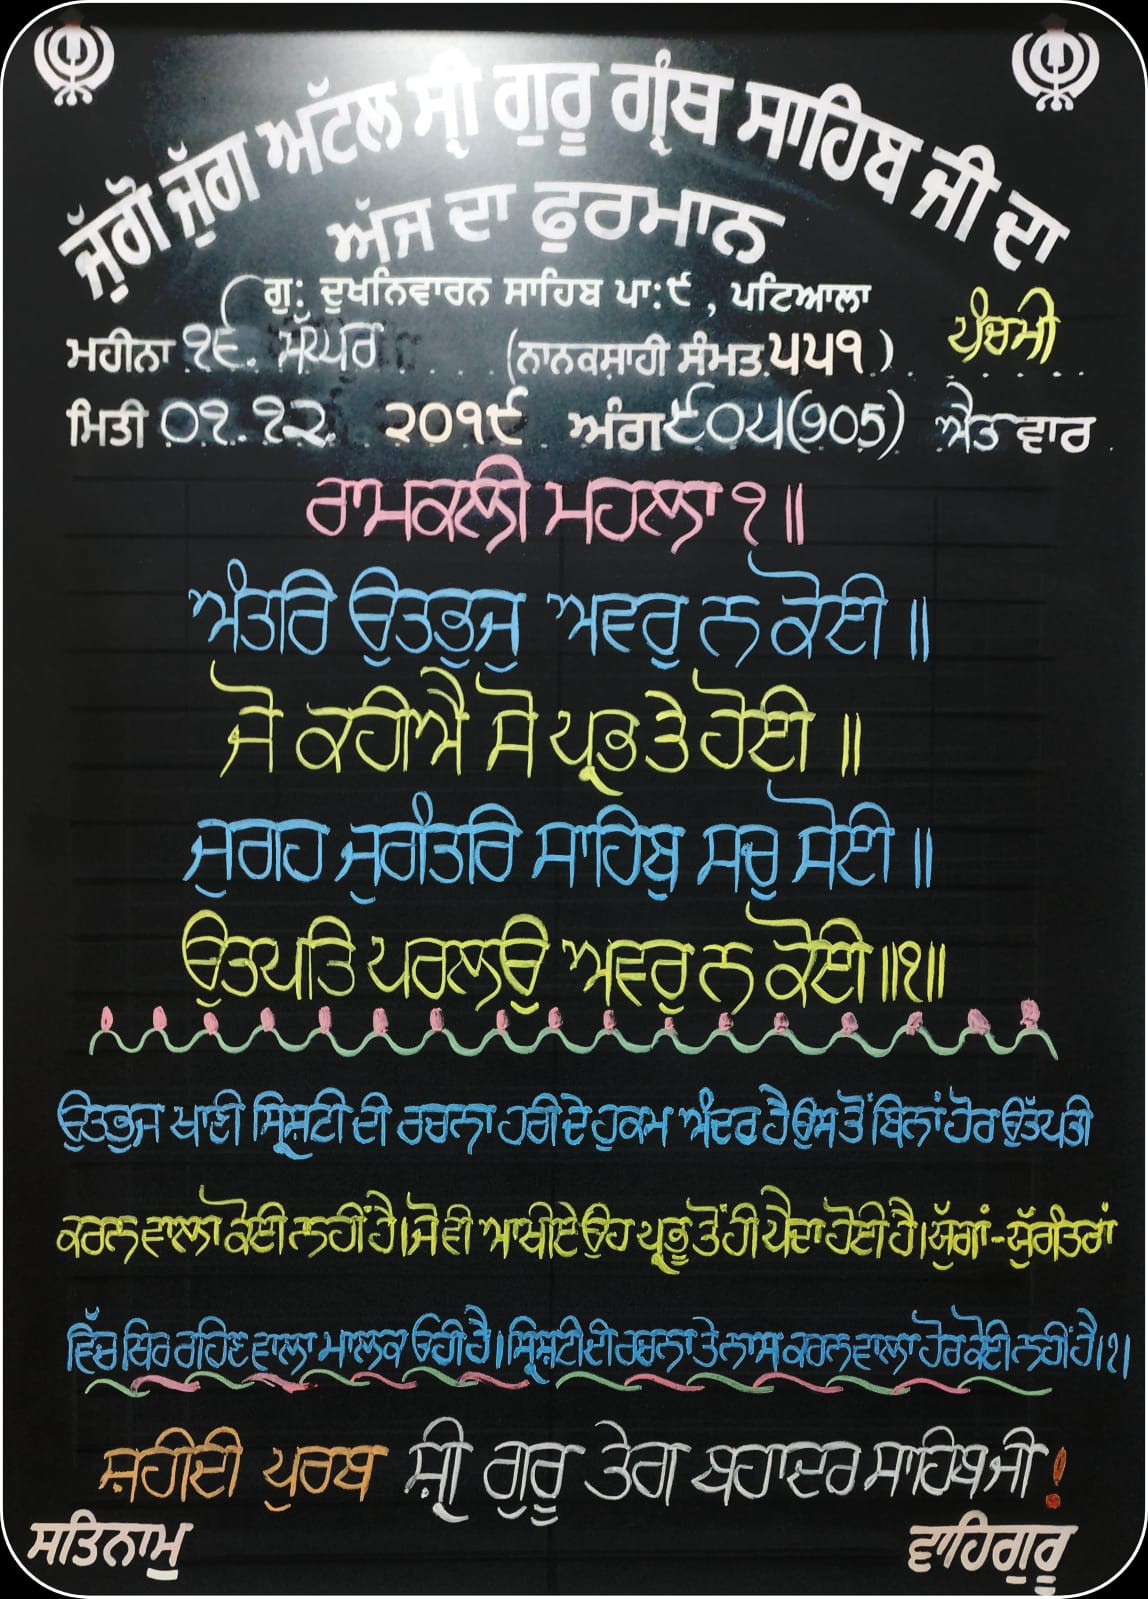 ਜੁੱਗੋ ਜੁੱਗ ਅਟੱਲ ਸ੍ਰੀ ਗੁਰੂ ਗ੍ਰੰਥ ਸਾਹਿਬ ਜੀ ਦਾ
ਅੱਜ ਦਾ ਫੁਰਮਾਨ
ਗੁ: ਦੁਖਨਿਵਾਰਨ ਸਾਹਿਬ ਪਾ:੯, ਪਟਿਆਲਾ
ਮਹੀਨਾ ੧੬. ਮੱਘਰ (ਨਾਨਕਸ਼ਾਹੀ ਸੰਮਤ.੫੫੧) ਪੰਚਮੀ
ਮਿਤੀ ੦੧.੧੨ ੨੦੧੯ ਅੰਗ ੯੦੫(905) ਐਤ ਵਾਰ
ਰਾਮਕਲੀ ਮਹਲਾ ੧ ॥
ਅੰਤਰਿ ਉਤਭੁਜੁ ਅਵਰੁ ਨ ਕੋਈ ॥
ਜੋ ਕਹੀਐ ਸੋ ਪ੍ਰਭ ਤੇ ਹੋਈ ॥
ਜੁਗਹ ਜੁਗੰਤਰਿ ਸਾਹਿਬੁ ਸਚੁ ਸੋਈ ॥
ਉਤਪਤਿ ਪਰਲਉ ਅਵਰੁ ਨ ਕੋਈ ॥੧॥
ਉਤਭੁਜ ਖਾਣੀ ਸ੍ਰਿਸ਼ਟੀ ਦੀ ਰਚਨਾ ਹਰੀ ਦੇ ਹੁਕਮ ਅੰਦਰ ਹੈ ਉਸ ਤੋਂ ਬਿਨਾਂ ਹੋਰ ਉੱਤਪਤੀ
ਕਰਨ ਵਾਲਾ ਕੋਈ ਨਹੀਂ ਹੈ। ਜੋ ਵੀ ਆਖੀਏ ਉਹ ਪ੍ਰਭੂ ਤੋਂ ਹੀ ਪੈਦਾ ਹੋਈ ਹੈ। ਯੁੱਗਾਂ-ਯੁੱਗੰਤਰਾਂ
ਵਿੱਚ ਥਿਰ ਰਹਿਣ ਵਾਲਾ ਮਾਲਕ ਓਹੀ ਹੈ। ਸ੍ਰਿਸ਼ਟੀ ਦੀ ਰਚਨਾ ਤੇ ਨਾਸ ਕਰਨ ਵਾਲਾ ਹੋਰ ਕੋਈ ਨਹੀਂ ਹੈ।੧।
ਸ਼ਹੀਦੀ ਪੁਰਬ ਸ਼੍ਰੀ ਗੁਰੂ ਤੇਗ ਬਹਾਦਰ ਸਾਹਿਬ ਜੀ !
ਸਤਿਨਾਮੁ ਵਾਹਿਗੁਰੂ